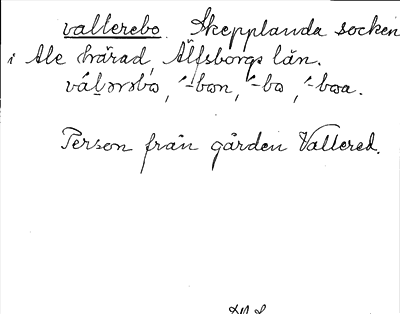 vallerebo. Skepplanda socken
i Ale härad, Älfsborgs län.
Person från gården Vallered.